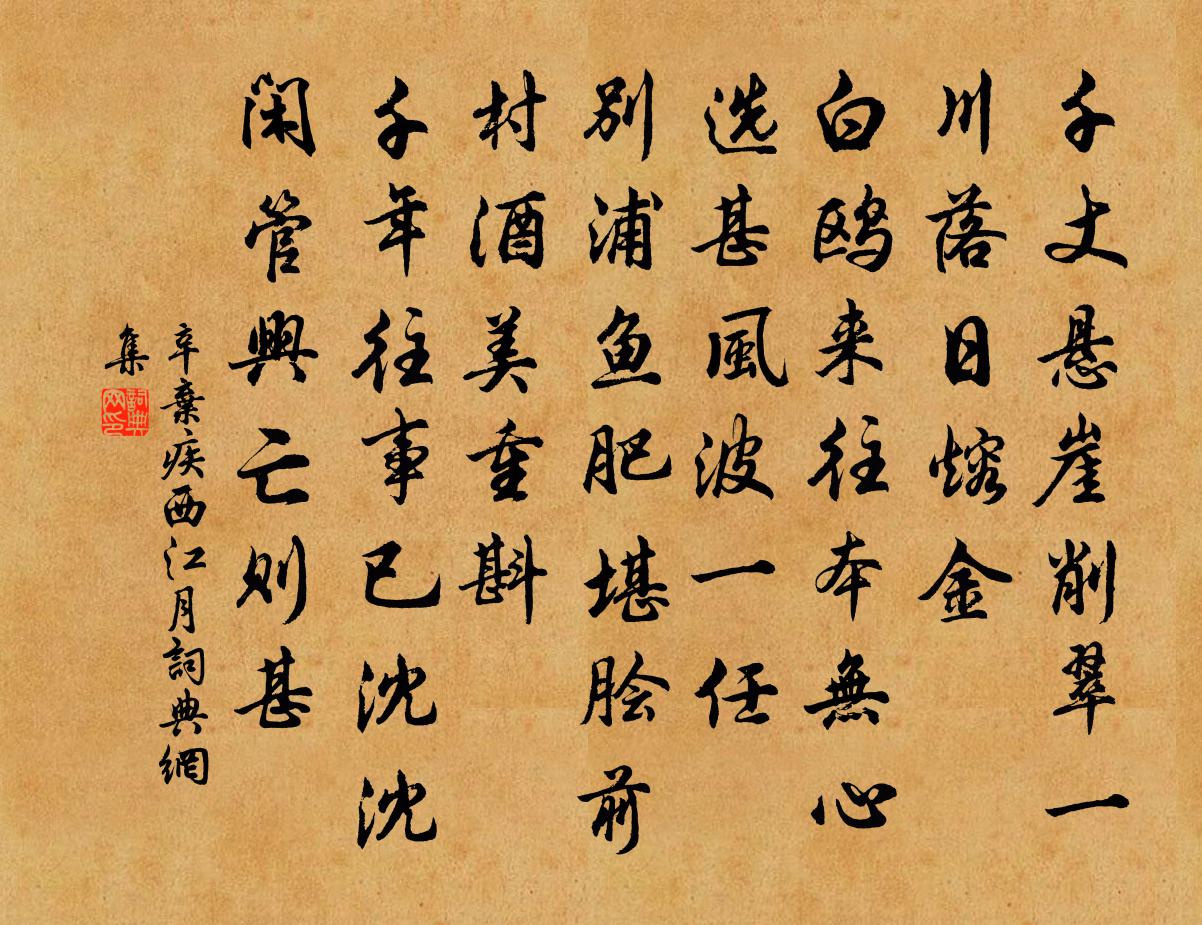 千丈悬崖削翠一
川落日熔金
白鸥来往本無心
选甚風波一任
别浦鱼肥堪脍前
村酒美重斟
千年往事已沈沈
闲管興亡则甚
辛棄疾西江月詞典網
集
詞典
网印